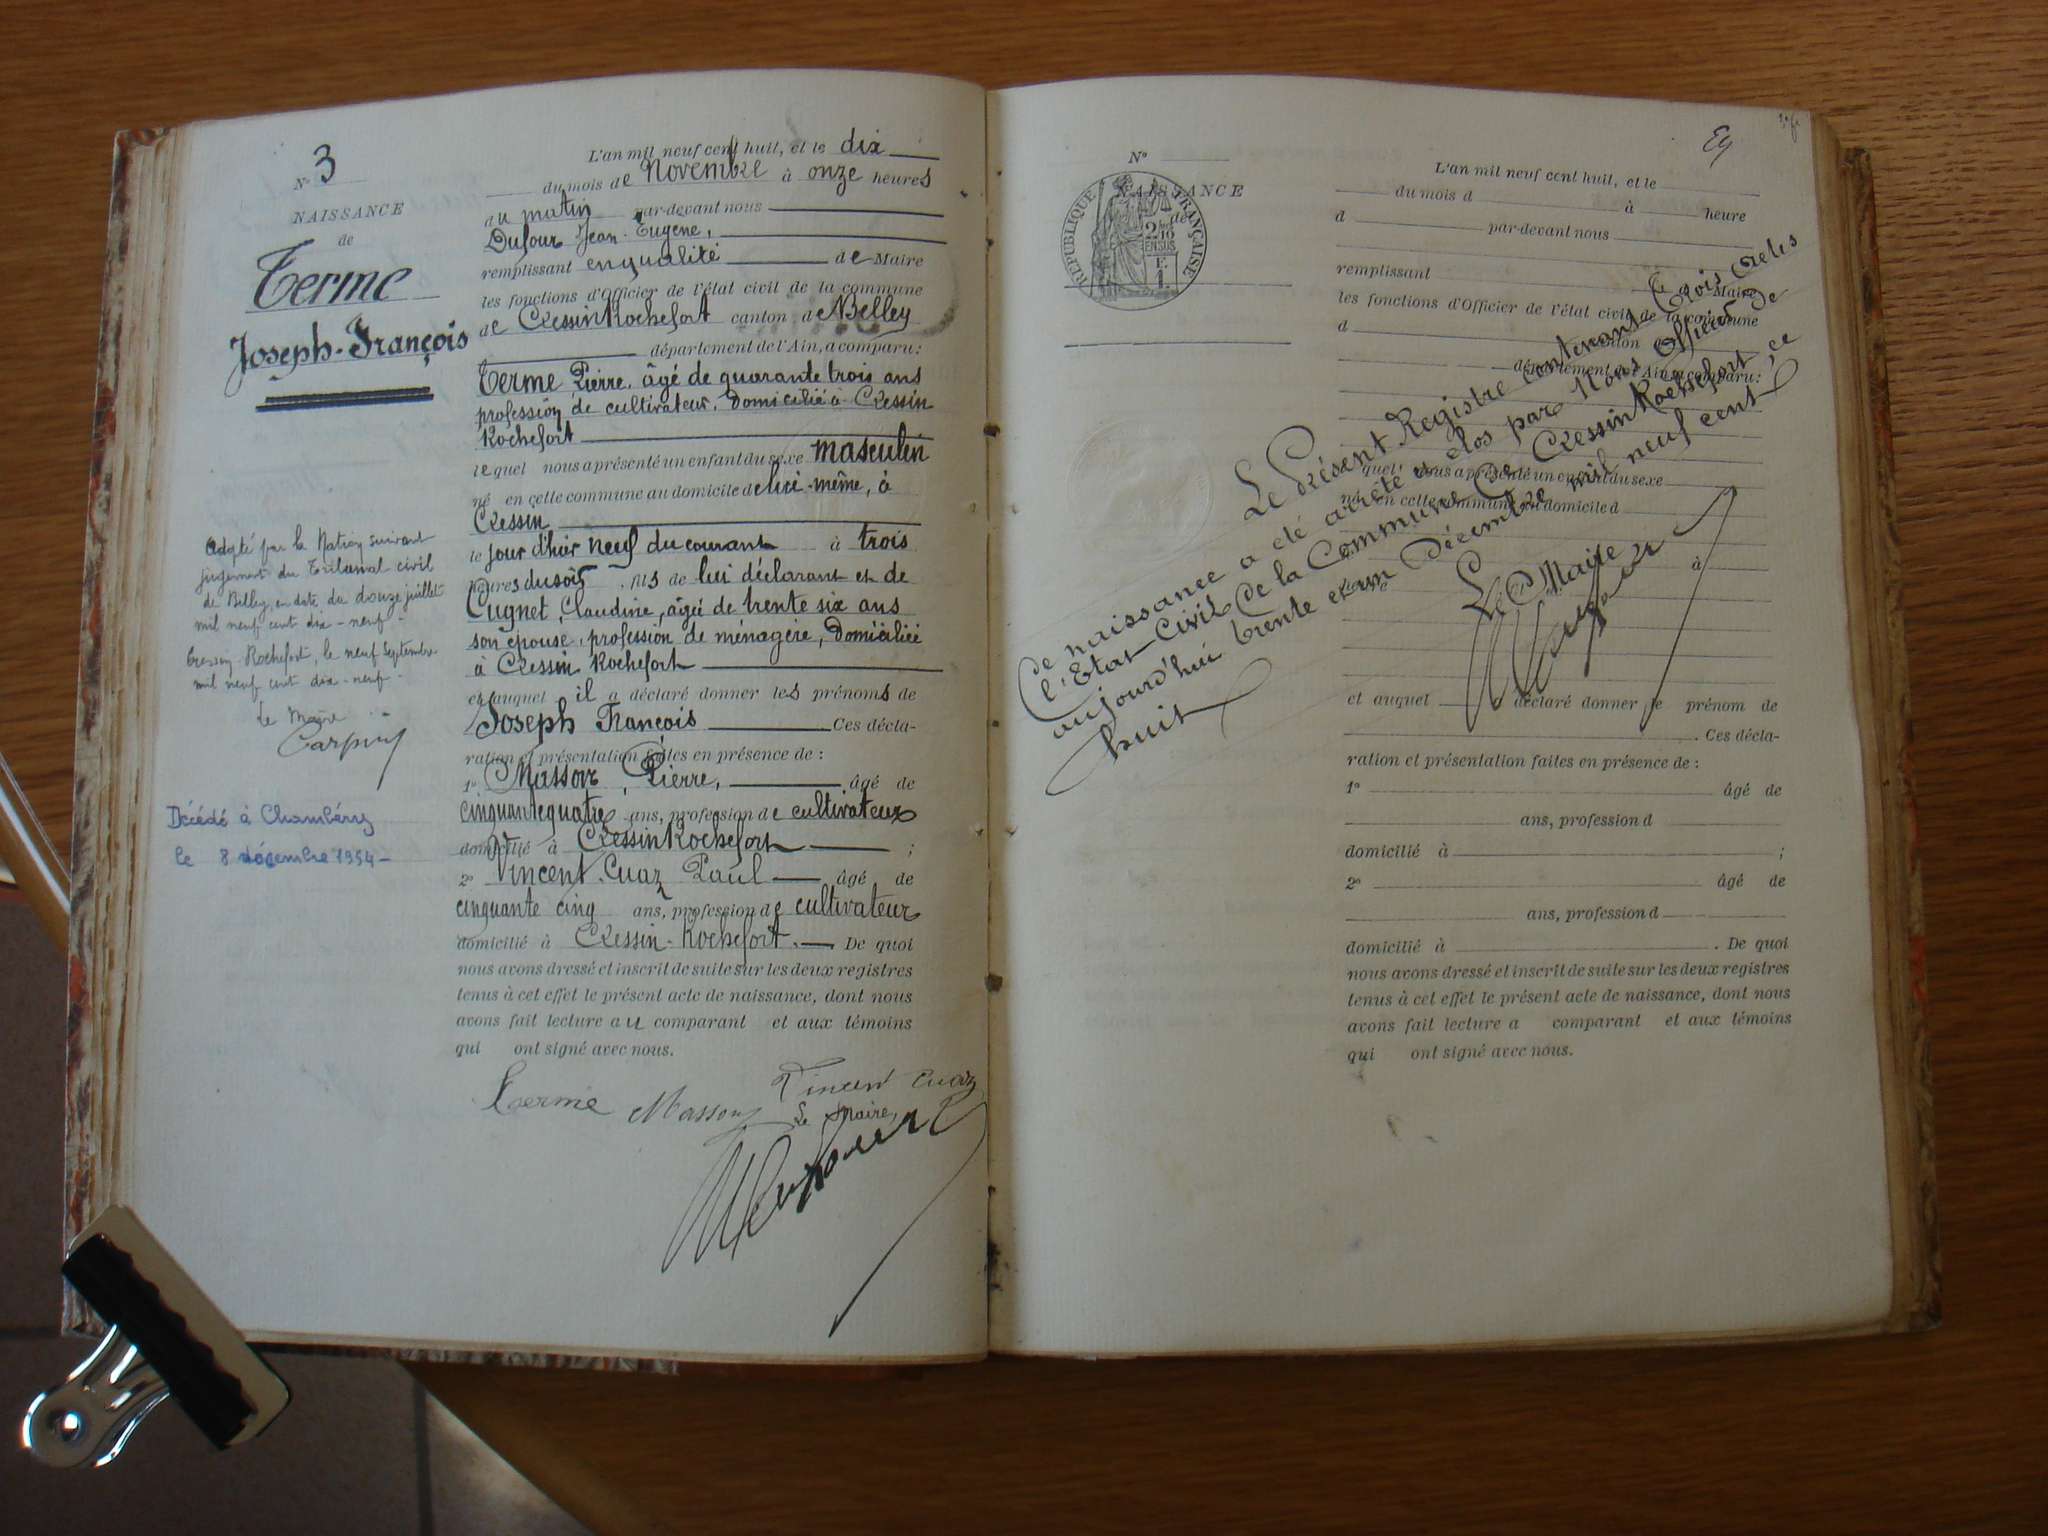 N° 3
NAISSANCE
de
Terme
Joseph-François
Adopté par la Nation suivant
jugement du Tribunal civil
de Belley, en date du douze juillet
mil neuf cent dix-neuf.
Cressin-Rochefort, le neuf septembre
mil neuf cent dix-neuf.
Le Maire
Décédé à Chambéry
le 8 décembre 1954-
L'an mil neuf cent huit, et le dix
du mois de Novembre à onze heures
du matin par-devant nous
Dufour Jean-Eugène,
remplissant en qualité de Maire
les fonctions d'Officier de l'état civil de la commune
de Cressin Rochefort canton de Belley
département de l'Ain, a comparu:
Terme Pierre, âgé de quarante trois ans
profession de cultivateur, domicilié à Cressin
Rochefort
lequel nous a présenté un enfant du sexe masculin
né en celle commune au domicile de lui-même, à
Cressin
le jour d'hier neuf du courant à trois
heures du soir, fils de lui déclarant et de
Cugnet, Claudine, âgée de trente six ans
son épouse, profession de ménagère, domiciliée
à Cressin Rochefort
et auquel il a déclaré donner les prénoms de
Joseph François Ces décla-
ration et présentation faites en présence de :
1° Masson, Pierre, âgé de
cinquante quatre ans, profession de cultivateur
domicilié à Cressin Rochefort ;
2° Vincent-Cuaz Paul âgé de
cinquante cinq ans, profession de cultivateur
domicilié à Cressin-Rochefort. De quoi
nous avons dressé et inscrit de suite sur les deux registres
tenus à cet effet le présent acte de naissance, dont nous
avons fait lecture au comparant et aux témoins
qui ont signé avec nous.
Vincent Cuaz
Terme Masson Le Maire,
N°
NAISSANCE
de
RÉPUBLIQUE FRANÇAISE
2/10
EN SUS
F.
1.
L'an mil neuf cent huit, et le
du mois d à heure
d par-devant nous
remplissant Maire
les fonctions d'Officier de l'état civil de la commune
d canton
département de l'Ain, a comparu:
quel nous a présenté un enfant du sexe
né en celle commune au domicile d
à
heure
et auquel déclaré donner le prénom de
. Ces décla-
ration et présentation faites en présence de :
1° âgé de
ans, profession d
domicilié à ;
2° âgé de
ans, profession d
domicilié à . De quoi
nous avons dressé et inscrit de suite sur les deux registres
tenus à cet effet le présent acte de naissance, dont nous
avons fait lecture a comparant et aux témoins
qui ont signé avec nous.
Le Présent Registre contenant trois actes
de naissance a été arrêté et clos par Nous Officier de
l'Etat-Civil de la Commune de Cressin Rochefort, ce
aujourd'hui trente et un Décembre mil neuf cent
huit
Le Maire